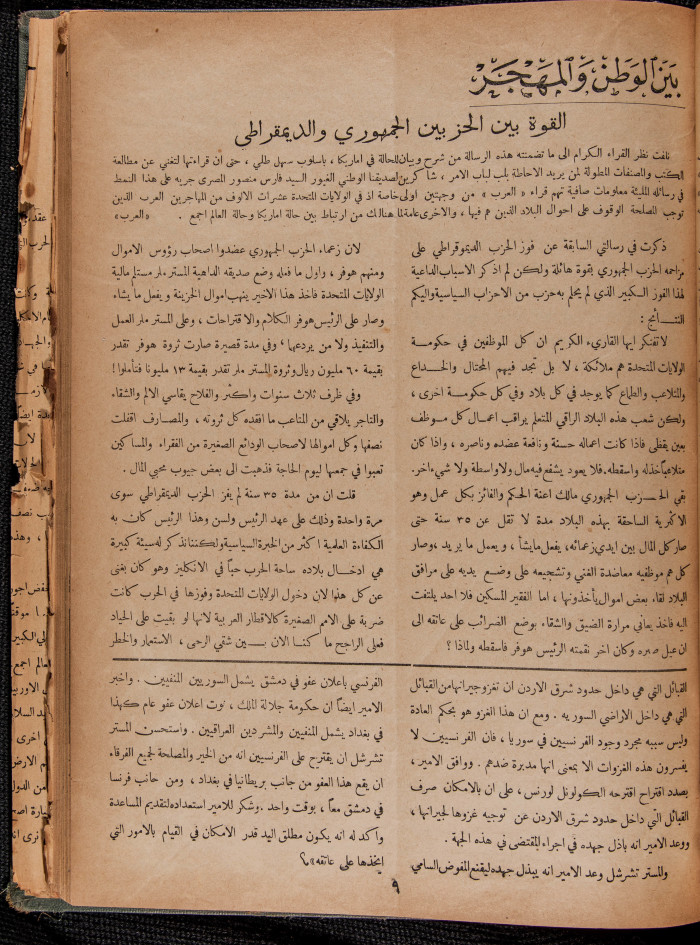 بَيْنَ الوَطَنْ وَالمَهْجَرْ
القوة بين الحزبين الجمهوري والديمقراطي
نلفت نظر القراء الكرام الى ما تضمنته هذه الرسالة من شرح وبيان للحالة في اماريكا، باسلوب سهل طلي، حتى ان قراءتها لتغني عن مطالعة
الكتب والمصنفات المطولة لمن يريد الاحاطة بلب لباب الامر، شاكرين لصديقنا الوطني الغيور السيد فارس منصور المصري جريه على هذا النمط
في رسائله المليئة معلومات صافية تهم قراء « العرب » من وجهتين اولى خاصة اذ في الولايات المتحدة عشرات الالوف من المهاجرين العرب الذين
توجب المصلحة الوقوف على احوال البلاد الذين هم فيها، والاخرى عامة لما هنالك من ارتباط بين حالة اماريكا وحالة العالم اجمع . «العرب»
ذكرت في رسالتي السابقة عن فوز الحزب الديموقراطي على
مزاحمه الحزب الجمهوري بقوة هائلة ولكن لم اذكر الاسباب الداعية
لهذا الفوز الكبير الذي لم يحلم به حزب من الاحزاب السياسية واليكم
النتائج :
لا تفتكر ايها القاريء الكريم ان كل الموظفين في حكومة
الولايات المتحدة هم ملائكة، لا بل تجد فيهم المحتال والخداع
والمتلاعب والطماع كما يوجد في كل بلاد وفي كل حكومة اخرى ،
ولكن شعب هذه البلاد الراقي المتعلم يراقب اعمال كل موظف
بعين يقظى فاذا كانت اعماله حسنة ونافعة عضده وناصره ، واذا كان
متلاعبا خذله واسقطه. فلا يعود يشفع فيه مال ولا واسطة ولا شيء آخر.
بقي الحزب الجمهوري مالك اعنة الحكم والفائز بكل عمل وهو
الاكثرية الساحقة بهذه البلاد مدة لا تقل عن ٣٥ سنة حتى
صار كل المال بين ايدي زعمائه، يفعل ما يشأ، ويعمل ما يريد، وصار
كل هم موظفيه معاضدة الغني وتشجيعه على وضع يديه على مرافق
البلاد لقاء بعض اموال يأخذونها، اما الفقير المسكين فلا احد يلتفت
اليه فاخذ يعاني مرارة الضيق والشقاء بوضع الضرائب على عاتقه الى
ان عيل صبره وكان آخر نقمته الرئيس هوفر فاسقطه ولماذا ؟
لان زعماء الحزب الجمهوري عضدوا اصحاب رؤوس الاموال
ومنهم هوفر، واول ما فعله وضع صديقه الداهية المستر ملر مستلم مالية
الولايات المتحدة فاخذ هذا الاخير ينهب اموال الخزينة ويفعل ما يشاء
وصار على الرئيس هوفر الكلام والاقتراحات ، وعلى المستر ملر العمل
والتنفيذ ولا من يردعها ، وفي مدة قصيرة صارت ثروة هوفر تقدر
بقيمة ٦٠ مليون ريال وثروة المستر ملر تقدر بقيمة ١٣ مليونا فتأملوا!
وفي ظرف ثلاث سنوات واكثر والفلاح يقاسي الالم والشقاء
والتاجر يلاقي من المتاعب ما افقده كل ثروته ، والمصارف اقفلت
نصفها وكل اموالها لاصحاب الودائع الصغيرة من الفقراء والمساكين
تعبوا في جمعها ليوم الحاجة فذهبت الى بعض جيوب محبي المال .
قلت ان من مدة ٣٥ سنة لم يفز الحزب الديمقراطي سوى
مرة واحدة وذلك على عهد الرئيس ولسن وهذا الرئيس كان به
الكفاءة العلمية اكثر من الخبرة السياسية ولكننا نذكر له سيئة كبيرة
هي ادخال بلاده ساحة الحرب حباً في الانكليز وهو كان بغنى
عن كل هذا لان دخول الولايات المتحدة وفوزها في الحرب كانت
ضربة على الامم الصغيرة كالاقطار العربية لانها لو بقيت على الحياد
فعلى الراجح ما كنا الان بين شقي الرحى ، الاستعمار والخطر
القبائل التي هي داخل حدود شرق الاردن ان تغزو جيرانها من القبائل
التي هي داخل الاراضي السورية . ومع ان هذا الغزو هو بحكم العادة
وليس سببه مجرد وجود الفرنسيين في سوريا، فان الفرنسيين لا
يفسرون هذه الغزوات الا بمعنى انها مدبرة ضدهم . ووافق الامير ،
بصدد اقتراح اقترحه الكولونل لورنس ، على ان بالامكان صرف
القبائل التي داخل حدود شرق الاردن عن توجيه غزوها لجيرانها ،
ووعد الامير انه باذل جهده في اجراء المقتضى في هذه الجهة .
والمستر تشرشل وعد الامير انه يبذل جهده ليقنع المفوض السامي
الفرنسي باعلان عفو في دمشق يشمل السوريين المنفيين . واخبر
الامير ايضاً ان حكومة جلالة الملك ، نوت اعلان عفو عام كهذا
في بغداد يشمل المنفيين والمشردين العراقيين . واستحسن المستر
تشرشل ان يقترح على الفرنسيين انه من الخير والمصلحة لجميع الفرقاء
ان يقع هذا العفو من جانب بريطانيا في بغداد ، ومن جانب فرنسا
في دمشق معاً ، بوقت واحد . وشكر للامير استعداده لتقديم المساعدة
واكد له انه يكون مطلق اليد قدر الامكان في القيام بالامور التي
اتخذها على عاتقه» .؟
٩